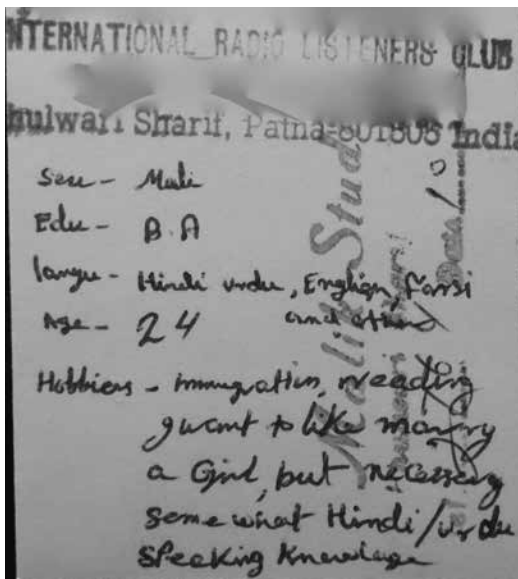 INTERNATIONAL RADIO LISTENERS CLUB
hulwari Sharif, Patna-801505 India
Sex - Male
Edu - B.A
langu - Hindi urdu, English, Farsi
and other
Age - 24
Hobbiers - immugration, reading
I want to like marry
a Girl, but necessary
some what Hindi/urdu
speaking Knowledge
Malik Stud
Date